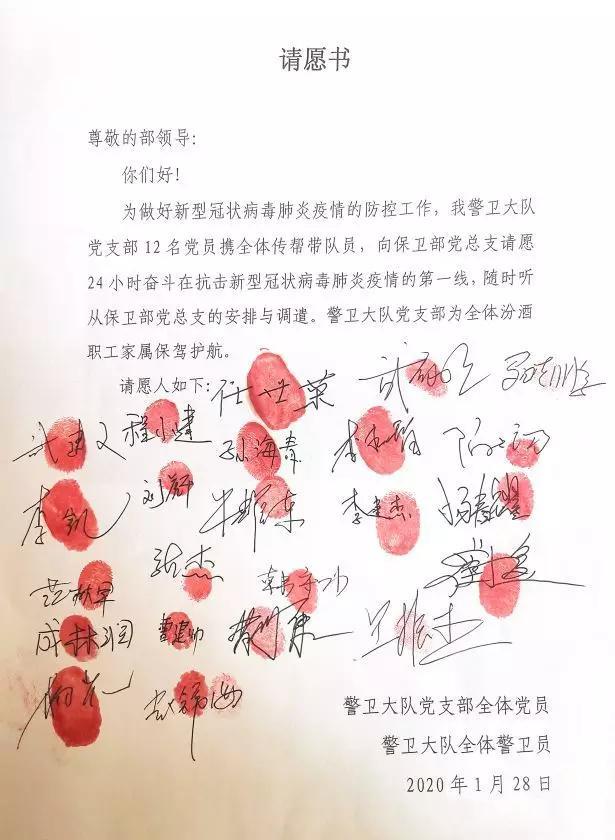 请愿书
尊敬的部领导：
你们好！
为做好新型冠状病毒肺炎疫情的防控工作，我警卫大队
党支部12名党员携全体传帮带队员，向保卫部党总支请愿
24小时奋斗在抗击新型冠状病毒肺炎疫情的第一线，随时听
从保卫部党总支的安排与调遣。警卫大队党支部为全体汾酒
职工家属保驾护航。
请愿人如下：任世荣
武建文 程小建 孙海青
李凯 刘 李建杰
杰
成林润 曹建帅
警卫大队党支部全体党员
警卫大队全体警卫员
2020年1月28日